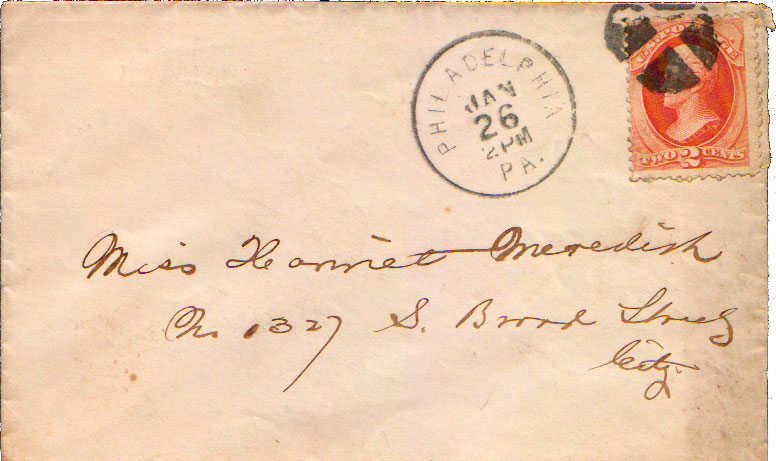 PHILADELPHIA
JAN
26
2 PM
PA.
U.S. POSTAGE
TWO 2 CENTS
Miss Harriet Meredith
No 1327 S. Broad Street
City.